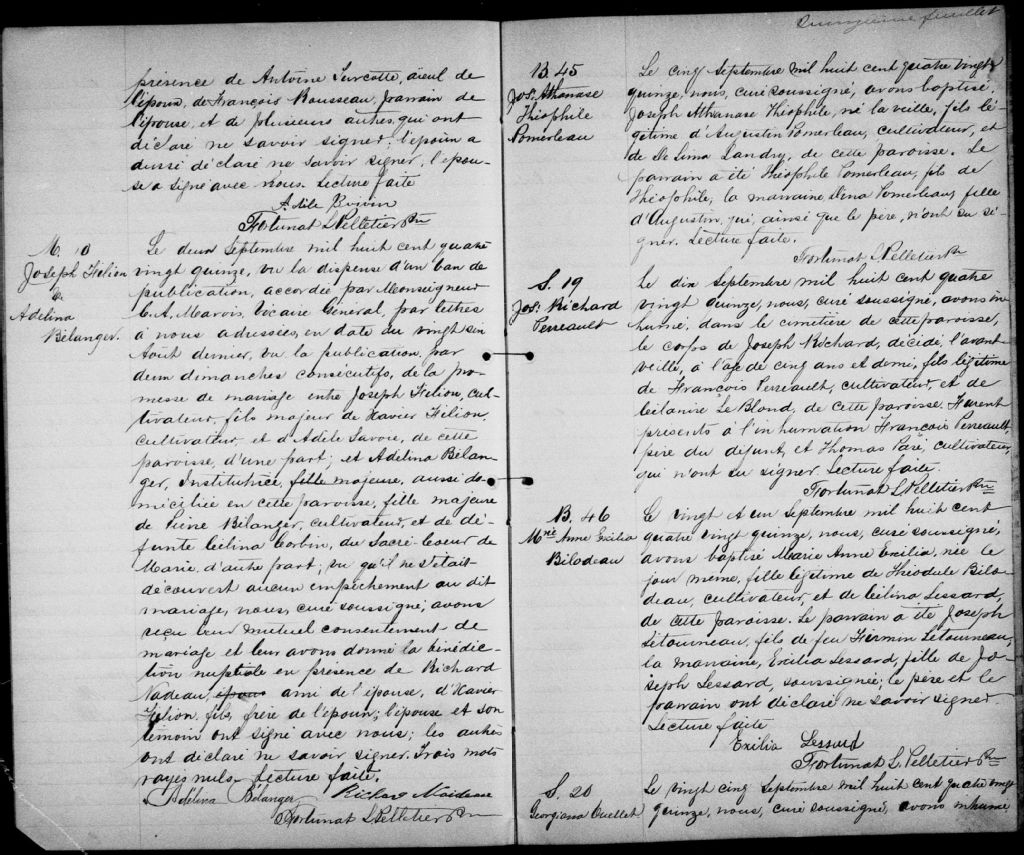 présence de Antoine Turcotte, aïeul de
l'époux, de François Rousseau, parrain de
l'épouse, et de plusieurs autres, qui ont
déclaré ne savoir signer; l'époux a
aussi déclaré ne savoir signer, l'épou-
se a signé avec nous. Lecture faite
Adèle Boivin
Fortunat L Pelletier Ptre
M. 10
Joseph Filion
&
Adelina
Bélanger.
Le deux Septembre mil huit cent quatre
vingt quinze, vu la dispense d'un ban de
publication, accordée par Monseigneur
C. A. Marois, Vicaire Général, par lettres
à nous adressées, en date du vingt six
Août dernier, vu la publication, par
deux dimanches consécutifs, de la pro-
messe de mariage entre Joseph Filion, cul-
tivateur, fils majeur de Xavier Filion,
cultivateur, et d'Adèle Savoie, de cette
paroisse, d'une part; et Adelina Bélan-
ger, Institutrice, fille majeure, aussi do-
miciliée en cette paroisse, fille majeure
de Bélanger, cultivateur, et de dé-
funte Célina Corbin, du Sacré-Coeur de
Marie, d'autre part; vu qu'il ne s'était
découvert aucun empêchement au dit
mariage, nous, curé soussigné, avons
reçu leur mutuel consentement de
mariage et leur avons donné la bénédic-
tion nuptiale en présence de Richard
Nadeau, ami de l'épouse, d'Xavier
Filion, fils, frère de l'époux; l'épouse et son
témoin ont signé avec nous; les autres
ont déclaré ne savoir signer. Trois mots
rayés nuls. Lecture faite.
Adélina Bélanger Richard Nadeau
Fortunat L Pelletier Ptre
Cinquième feuillet
B. 45
Jos. Athanase
Théophile
Pomerleau
Le cinq Septembre mil huit cent quatre vingt
quinze, nous, curé soussigné, avons baptisé
Joseph Athanase Théophile, né la veille, fils lé-
gitime d'Augustin Pomerleau, cultivateur, et
de De Lima Landry, de cette paroisse. Le
parrain a été Théophile Pomerleau, fils de
Théophile, la marraine Dina Pomerleau, fille
d'Augustin, qui, ainsi que le père, n'ont su si-
gner. Lecture faite.
Fortunat L Pelletier Ptre
S. 19
Jos. Richard
Perreault
Le dix Septembre mil huit cent quatre
vingt quinze, nous, curé soussigné, avons in-
humé, dans le cimetière de cette paroisse,
le corps de Joseph Richard, décédé, l'avant-
veille, à l'âge de cinq ans et demi, fils légitime
de François Perreault, cultivateur, et de
Célanire Le Blond, de cette paroisse. Furent
présents à l'inhumation François Perreault,
père du défunt, et Thomas Paré, cultivateur,
qui n'ont su signer. Lecture faite.
Fortunat L Pelletier Ptre
B. 46
Mrie Anne Exilia
Bilodeau
Le vingt et un Septembre mil huit cent
quatre vingt quinze, nous, curé soussigné,
avons baptisé Marie Anne Exilia, née le
jour même, fille légitime de Théodule Bilo-
deau, cultivateur, et de Célina Lessard,
de cette paroisse. Le parrain a été Joseph
Létourneau, fils de feu Firmin Létourneau,
la marraine, Exilia Lessard, fille de Jo-
seph Lessard, soussignée; le père et le
parrain ont déclaré ne savoir signer.
Lecture faite
Exilia Lessard
Fortunat L. Pelletier Ptre
S. 20
Georgiana Ouellet
Le vingt cinq Septembre mil huit cent quatre vingt
quinze, nous, curé soussigné, avons inhumé